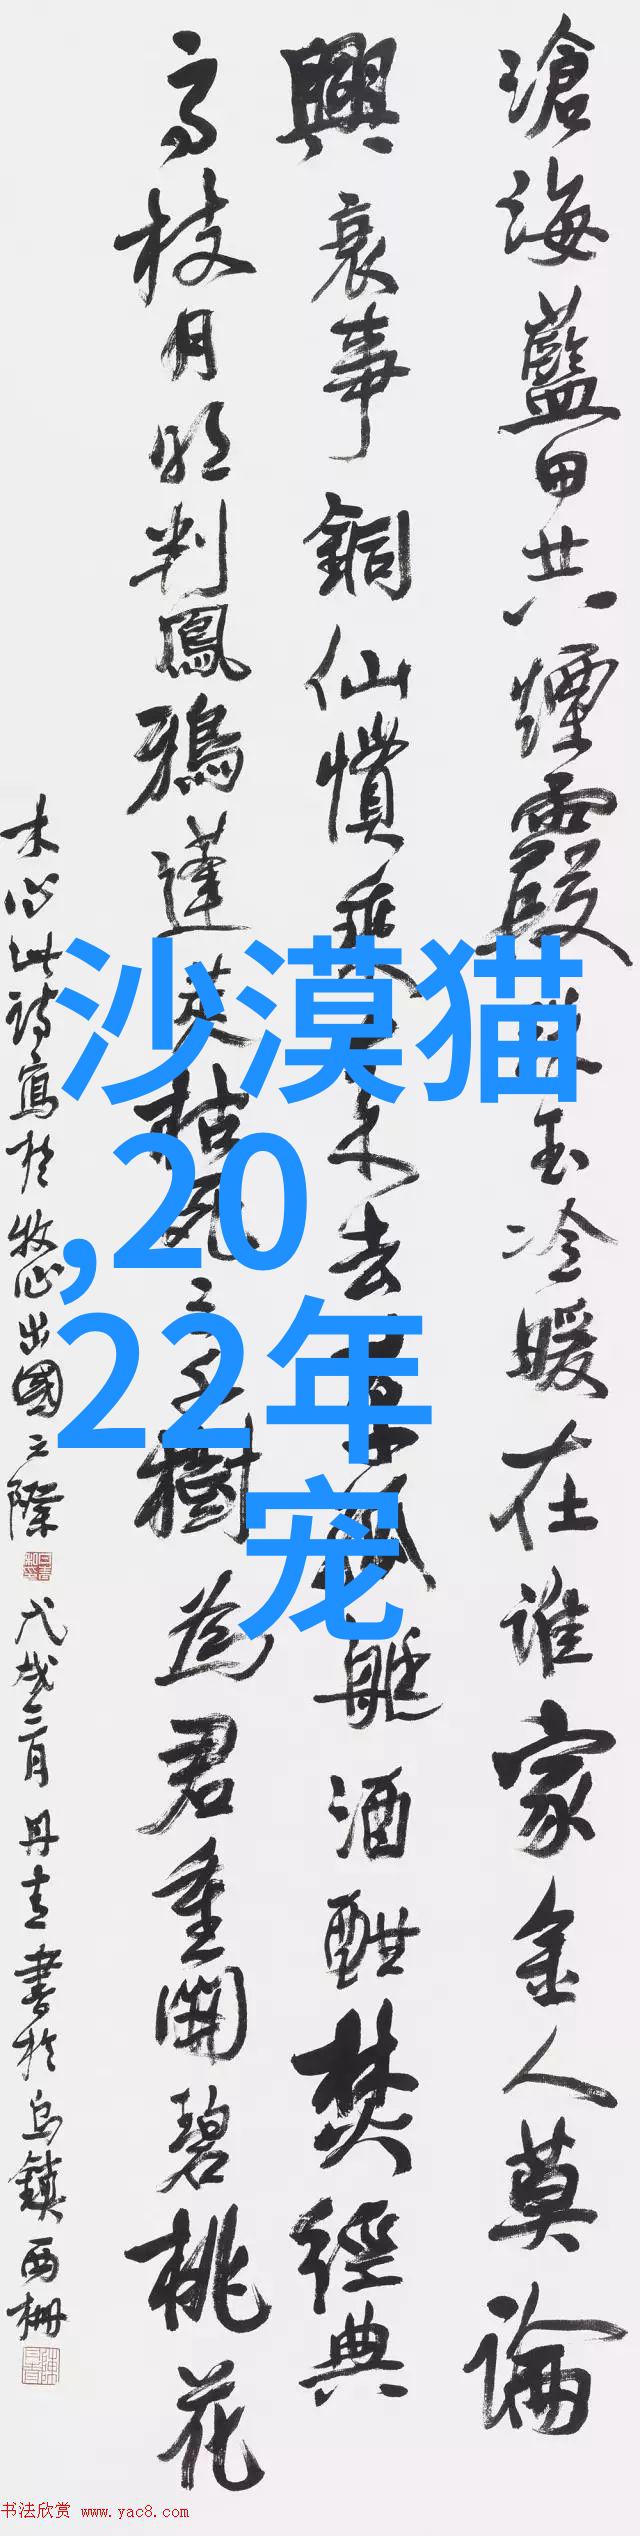 滄海藍田共煙霞珠玉冷暖在誰家金人莫論
興衰事銅仙慣乘來去車孤艇酒酣焚經典
高枝月明判鳳鴉蓬萊枯死三千樹為君重開碧桃花
木心此詩寫於牧心出國之際
戊戌三月丹青書於烏鎮西柵
沙漠猫
,20
22年
宠
书法欣赏 www.yac8.com